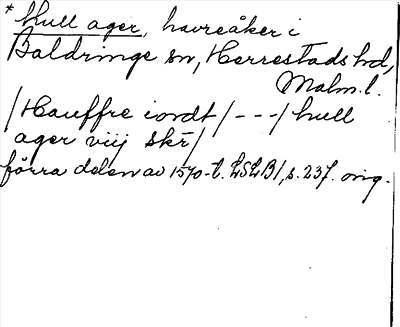 * Hull ager, havreåker i
Baldringe sn, Herrestads hd,
Malm. l.
/Hauffre iordt/---/hull
ager viij skr/
förra delen av 1570-t. LSLB1, s. 237. orig.